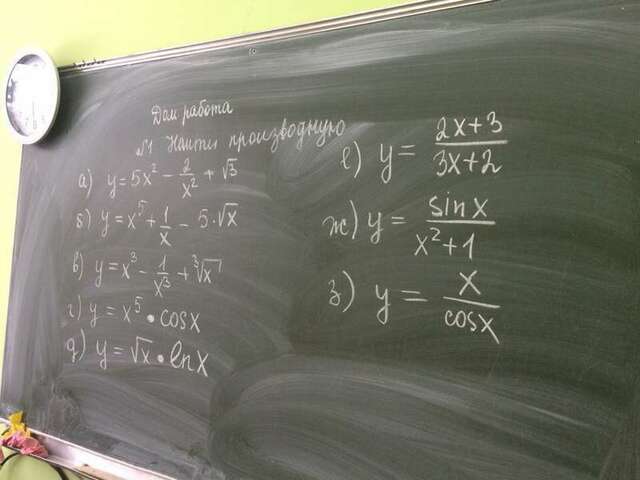 Дом работа
№1 Найти производную
а) y = 5x² - 2/x² + √3
б) y = x⁵ + 1/x - 5·√x
в) y = x³ - 1/x³ + ∛x
г) y = x⁵ • cosx
д) y = √x • lnx
е) y = (2x+3)/(3x+2)
ж) y = sinx/(x²+1)
з) y = x/cosx